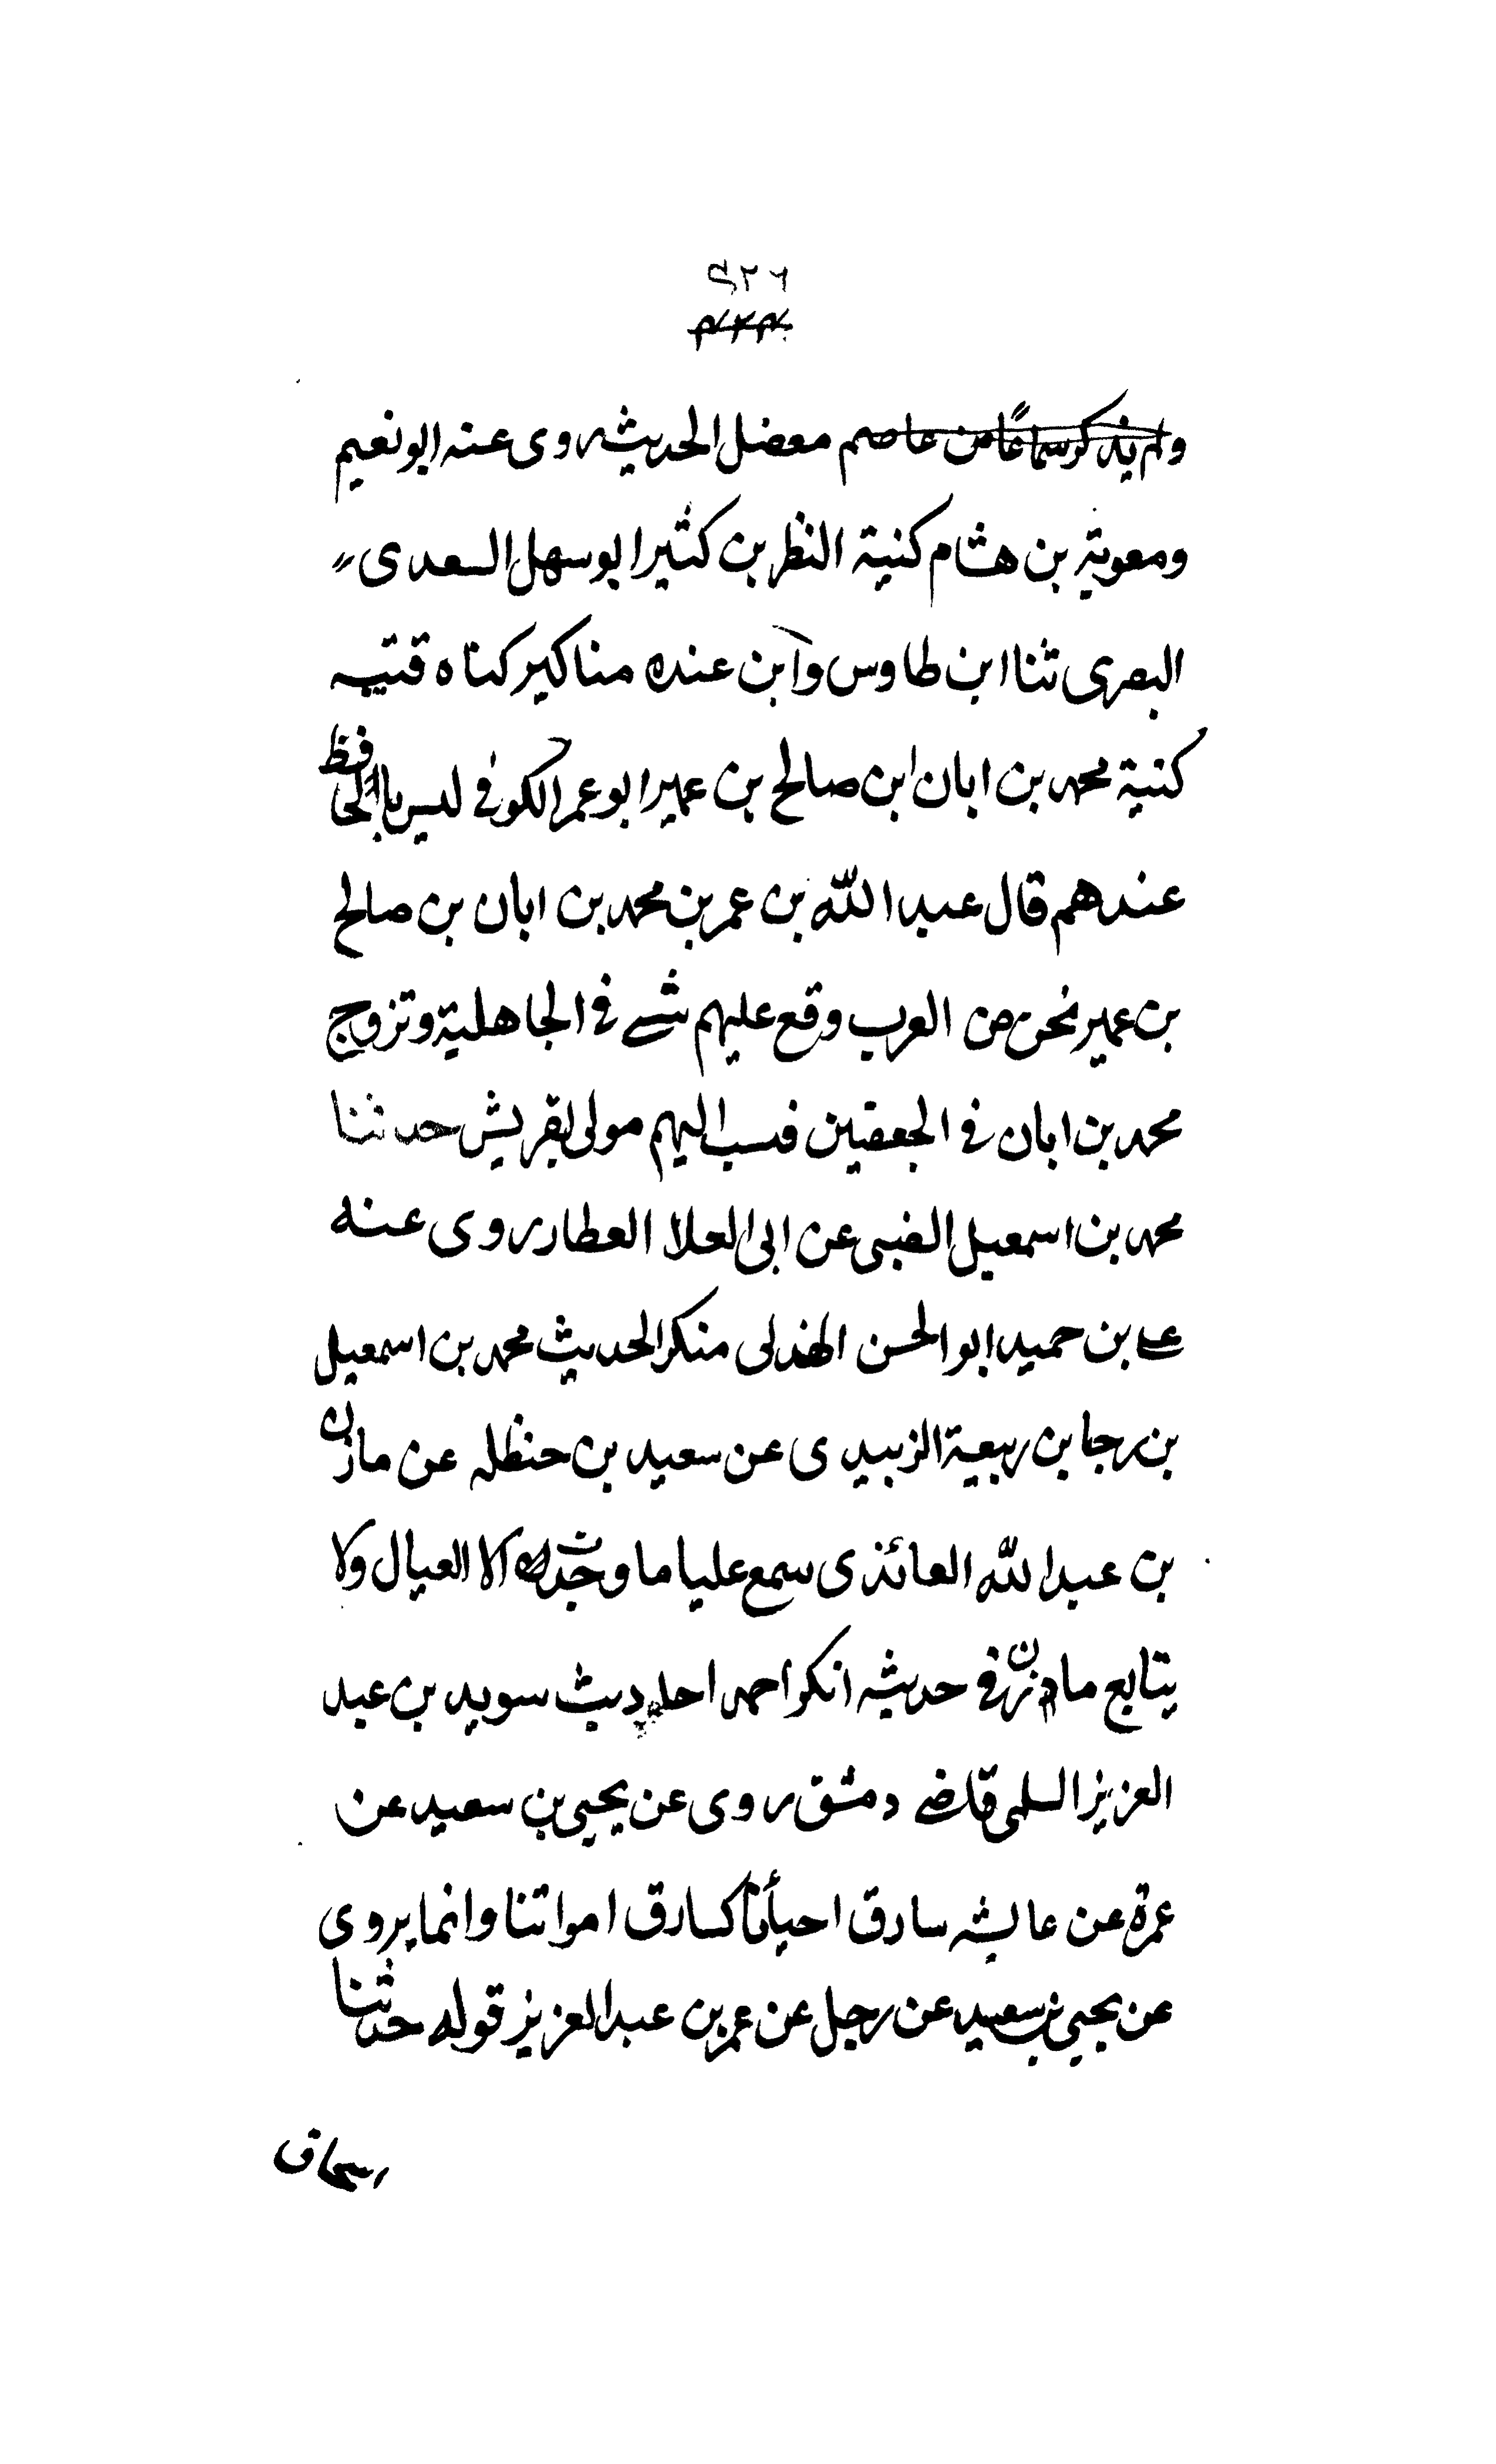 ٤٢٦
ولم يذكر سماعًا من عاصم معضل الحديث روى عنه ابو نعيم
ومعوية بن هشام كنية النظر بن كثير ابو سهل السعدى
البصرى ثنا ابن طاوس وابن عنده مناكير كناه قتيبه
كنية محمد بن ابان ابن صالح بن عمير ابو عمر الكوفى ليس بالحافظ
عندهم قال عبد الله بن عمر بن محمد بن ابان بن صالح
بن عمير نحن من العرب وقع عليهم شے فى الجاهلية وتزوج
محمد بن ابان فى الجعفين فنسب اليهم مولى لقريش حدثنا
محمد بن اسمعيل الضبى عن ابى العلا العطار روى عنه
علے بن حميد ابو الحسن الهذلى منكر الحديث محمد بن اسمعيل
بن رجا بن ربيعة الزبيدى عن سعيد بن حنظله عن مازن
بن عبد الله العائذى سمع عليا ما وجدت الا القتال ولا
يتابع مازن فى حديثه انكر احمد احاديث سويد بن عبد
العزيز السلمى قاضے دمشق روى عن يحيى بن سعيد عن
عمرة عن عايشه سارق احيأنا كسارق امواتنا وانما يروى
عن يحيى بن سعيد عن رجل عن عمر بن عبد العزيز قوله حدثنا
اسحاق